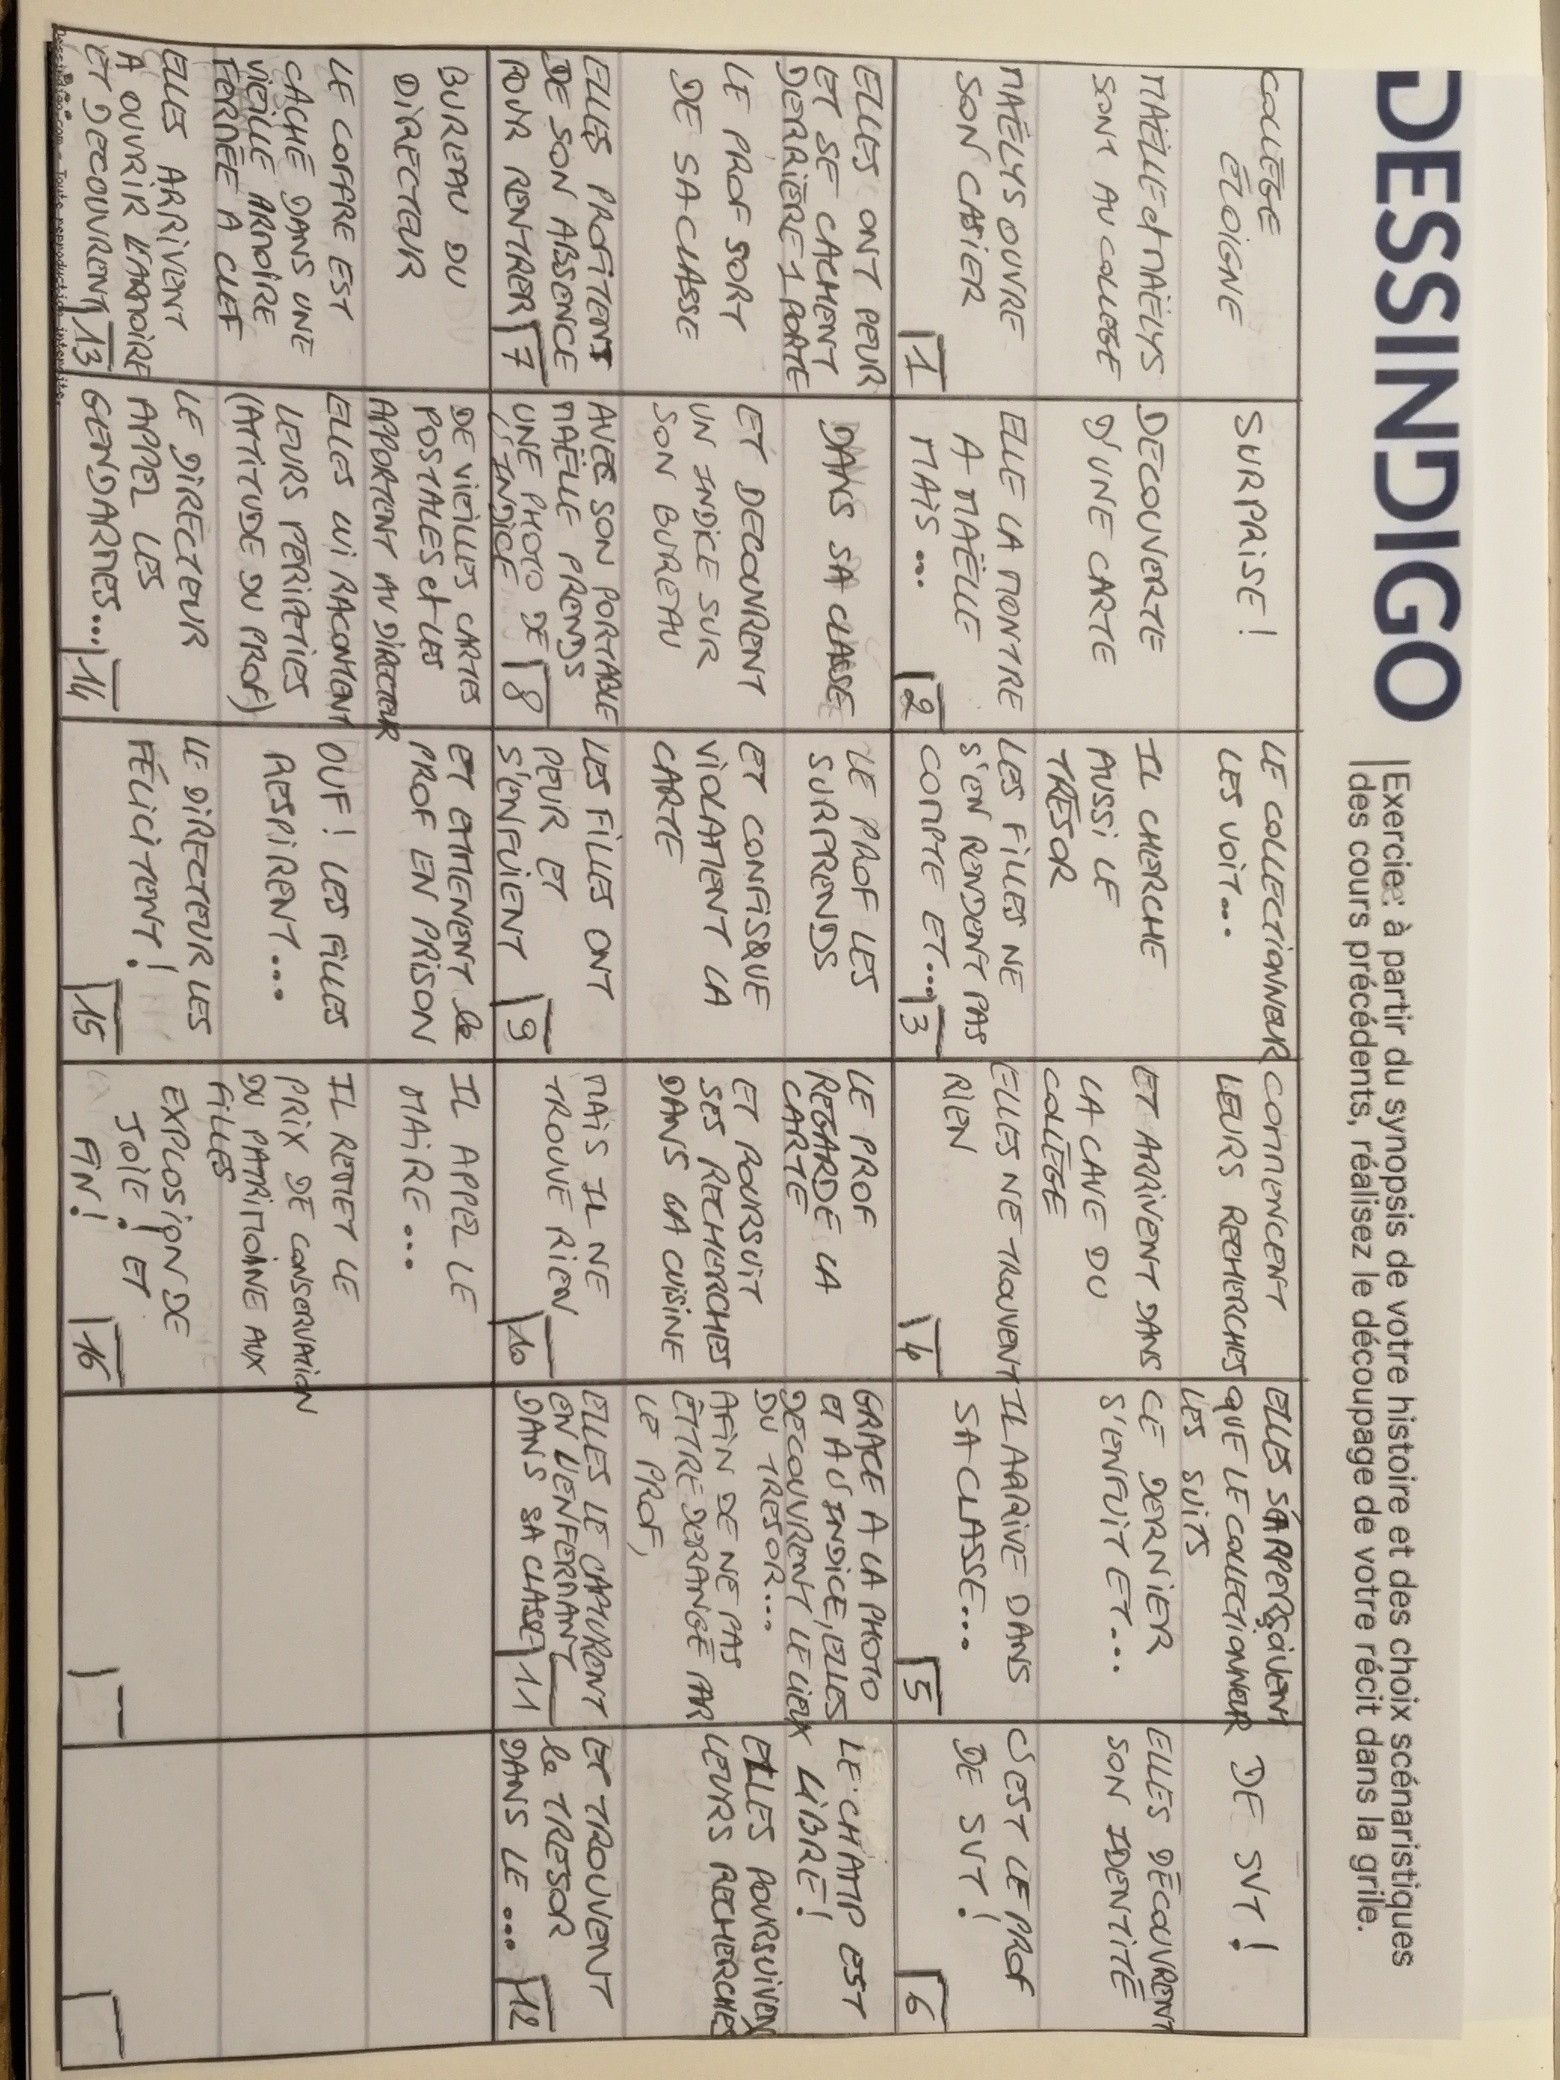 DESSINDIGO
Exercice: à partir du synopsis de votre histoire et des choix scénaristiques
des cours précédents, réalisez le découpage de votre récit dans la grille.
COLLÈGE
ÉLOIGNE
MAËLLE et MAËLYS
SONT AU COLLEGE
MAËLYS OUVRE
SON CASIER
1
SURPRISE !
DECOUVERTE
D'UNE CARTE
ELLE LA MONTRE
A MAËLLE
MAIS...
2
LE COLLECTIONNEUR
LES VOIT...
IL CHERCHE
AUSSI LE
TRÉSOR
LES FILLES NE
S'EN RENDENT PAS
COMPTE ET...
3
COMMENCENT
LEURS RECHERCHES
ET ARRIVENT DANS
LA CAVE DU
COLLÈGE
ELLES NE TROUVENT
RIEN
4
ELLES S'APPERÇOIVENT
QUE LE COLLECTIONNEUR
LES SUITS
CE DERNIER
S'ENFUIT ET...
IL ARRIVE DANS
SA CLASSE...
5
DE SVT !
ELLES DÉCOUVRENT
SON IDENTITÉ
C'EST LE PROF
DE SVT !
6
ELLES ONT PEUR
ET SE CACHENT
DERRIÈRE 1 PORTE
LE PROF SORT
DE SA CLASSE
ELLES PROFITENT
DE SON ABSENCE
POUR RENTRER
7
DANS SA CLASSE
ET DECOUVRENT
UN INDICE SUR
SON BUREAU
AVEC SON PORTABLE
MAËLLE PRENDS
UNE PHOTO DE
L'INDICE
8
LE PROF LES
SURPRENDS
ET CONFISQUE
VIOLATMENT LA
CARTE
LES FILLES ONT
PEUR ET
S'ENFUIENT
9
LE PROF
REGARDE LA
CARTE
ET POURSUIT
SES RECHERCHES
DANS LA CUISINE
MAIS IL NE
TROUVE RIEN
10
GRACE A LA PHOTO
ET AU INDICE, ELLES
DECOUVRENT LE LIEUX
DU TRESOR...
AFIN DE NE PAS
ÊTTRE DERANGÉ PAR
LE PROF,
ELLES LE CAPTURENT
EN L'ENFERMANT
DANS SA CLASSE
11
LE CHAMP EST
LIBRE !
ELLES POURSUIVENT
LEURS RECHERCHES
ET TROUVENT
le TRESOR
DANS LE...
12
BUREAU DU
DIRECTEUR
LE COFFRE EST
CACHÉ DANS UNE
VIEILLE ARMOIRE
FERMÉE A CLEF
ELLES ARRIVENT
A OUVRIR L'ARMOIRE
ET DECOUVRENT
13
DE VIEILLES CARTES
POSTALES et LES
APPORTENT AU DIRECTEUR
ELLES LUI RACONTENT
LEURS PÉRIPETIES
(ATTITUDE DU PROF)
LE DIRECTEUR
APPEL LES
GENDARMES...
14
ET EMMENENT le
PROF EN PRISON
OUF ! LES FILLES
RESPIRENT...
LE DIRECTEUR LES
FÉLICITENT !
15
IL APPEL LE
MAIRE...
IL REMET LE
PRIX DE CONSERVATION
DU PATRIMOINE AUX
FILLES
EXPLOSION DE
JOIE ! ET
FIN !
16
Dessindigo.com - Toute reproduction interdite.